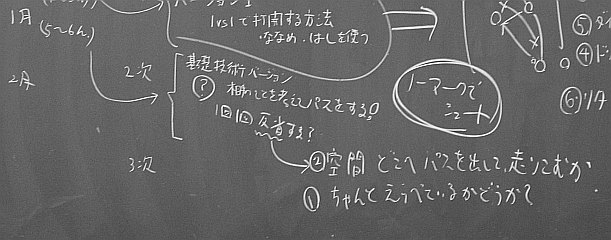 1月
(5~6h)
1vs1で打開する方法
ななめ・はしを使う
2月
2次
基礎技術バージョン
?
相手のことを考えてパスをする。
1回1回反省する?
ノーマークで
シュート
3次
②空間 どこへパスを出して、走りこむか
①ちゃんとえらべているかどうか?
⑤
④
⑥リタ